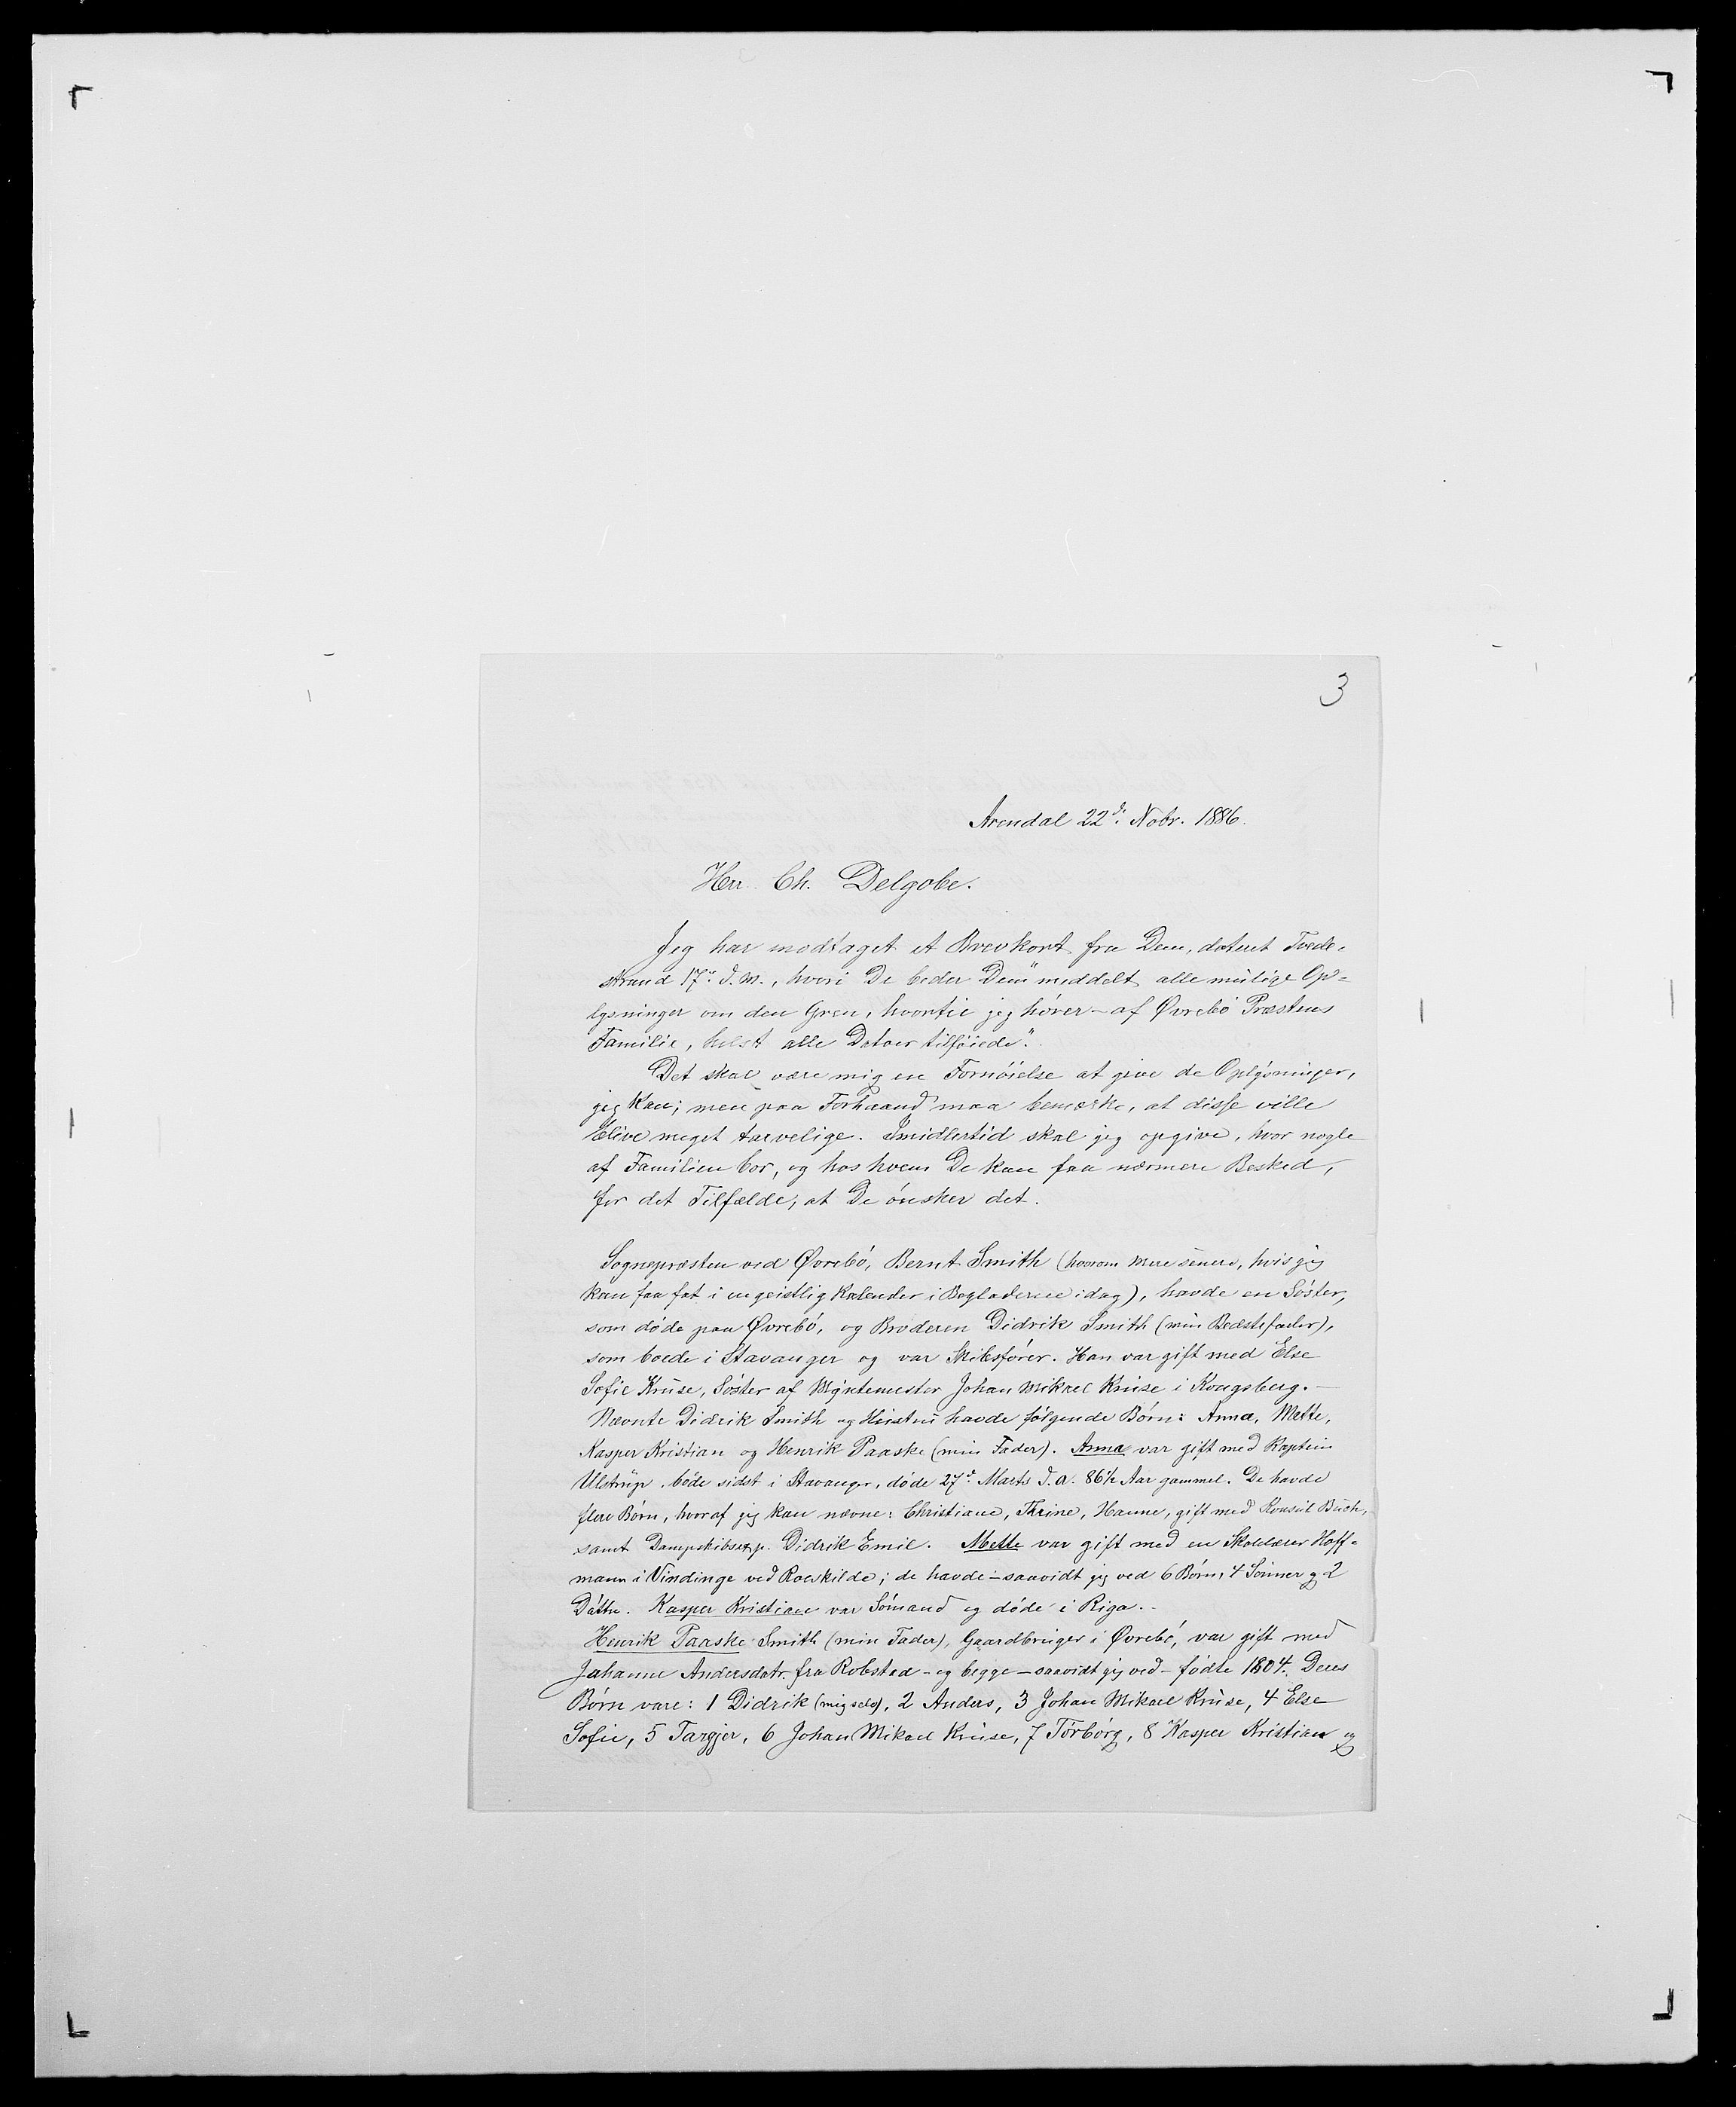 3
Arendal 22d. Nobr. 1886.
Herr Ch. Delgobe.
Jeg har modtaget et Brevkort fra Dem, dateret Tvede-
strand 17de d. M., hvori De beder Dem "meddelt alle mulige Op-
lysninger om den Gren, hvortil jeg hører - af Øvrebö Præstens
Familie, helst alle Datoer tilföiede".
Det skal være mig en Fornöielse at give de Oplysninger,
jeg kan; men paa Forhaand maa bemærke, at disse ville
blive meget tarvelige. Imidlertid skal jeg opgive, hvor nogle
af Familien bor, og hos hvem De kan faa nærmere Besked,
for det Tilfælde, at De önsker det.
Sognepræsten ved Øvrebö, Bernt Smith (hvorom mere senere, hvis jeg
kan faa fat i en geistlig Kalender i Bogladerne idag), havde en Söster,
som döde paa Øvrebö, og Broderen Didrik Smith (min Bedstefader),
som boede i Stavanger og var Skibsförer. Han var gift med Else
Sofie Kruse, Söster af Myntemester Johan Mikael Kruse i Kongsberg. -
Nævnte Didrik Smith og Hustru havde fölgende Börn: Anna, Mette,
Kasper Kristian og Henrik Paaske (min Fader). Anna var gift med Kaptein
Ulstrup, boede sidst i Stavanger, döde 27de Marts d. a. 86½ Aar gammel. De havde
flere Börn, hvoraf jeg kan nævne: Christiane, Thrine, Hanne, gift med Konsul Buch,
samt Dampskibsexp. Didrik Emil. Mette var gift med en Skolelærer Hoff-
mann i Vindinge ved Roeskilde; de havde - saavidt jeg ved 6 Börn, 4 Sönner og 2
Döttre. Kasper Kristian var Sömand og döde i Riga. -
Henrik Paaske Smith (min Fader), Gaardbruger i Øvrebö, var gift med
Johanne Andersdatr. fra Robstad - og begge - saavidt jeg ved - födte 1804. Deres
Börn vare: 1 Didrik (mig selv), 2 Anders, 3 Johan Mikael Kruse, 4 Else
Sofie, 5 Targjer, 6 Johan Mikael Kruse, 7 Torborg, 8 Kasper Kristian og